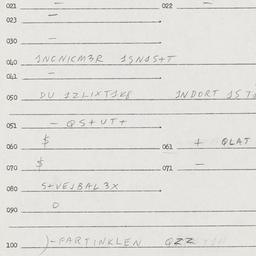 021 — 022 —
023 —
030 —
040 JNCNICM3R JSNJS+T
041 —
050 DU JZLIXTJK8 JNDORT JS T
051 — QS+UT+
060 $ 061 + QLAT
070 $ 071 —
080 S+VEJBAL 3X
090 O
100 )-FARTINKLEN QZZ